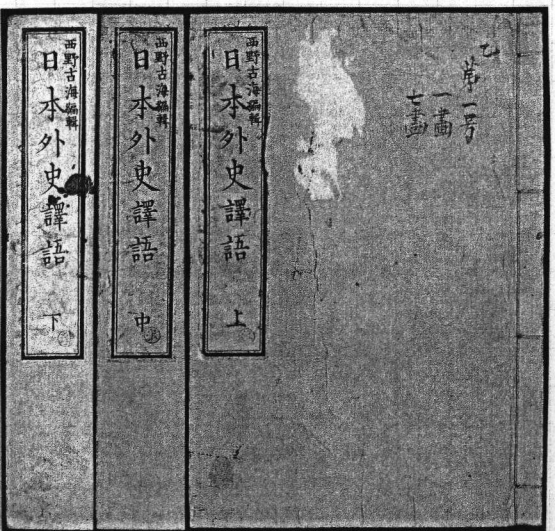 乙
第一号
一畵
七畵
西野古海編輯
日本外史譯語 上
西野古海編輯
日本外史譯語 中
西野古海編輯
日本外史譯語 下